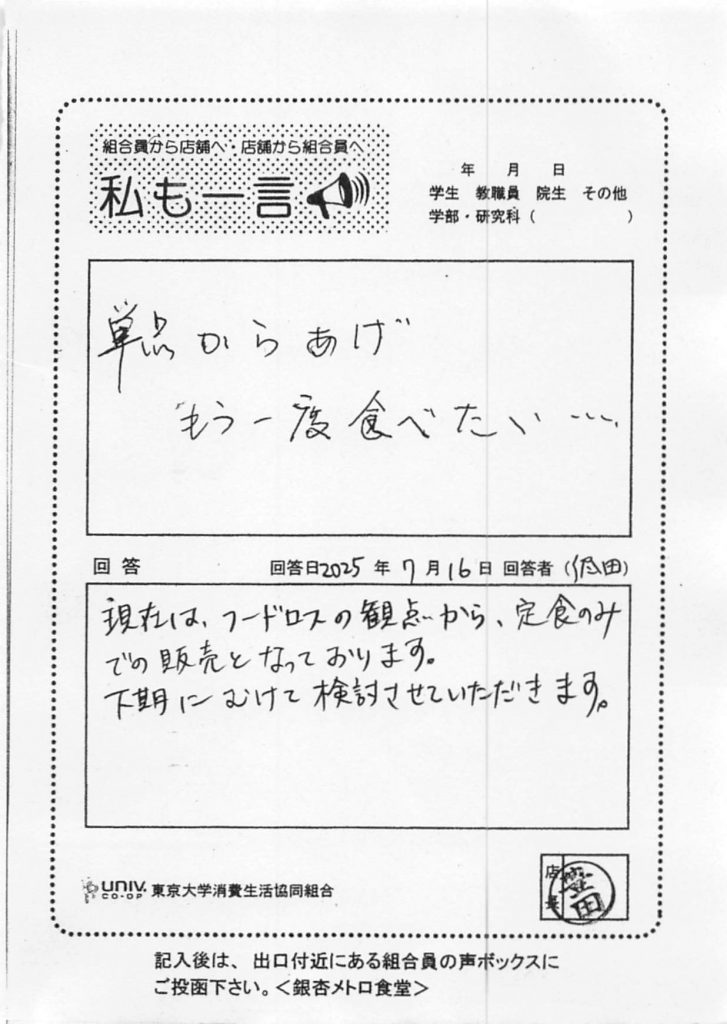 組合員から店舗へ・店舗から組合員へ
私も一言
年 月 日
学生 教職員 院生 その他
学部・研究科 ( )
単品からあげ
もう一度食べたい…
回答 回答日2025年7月16日 回答者 (田)
現在は、フードロスの観点から、定食のみ
での販売となっております。
下期にむけて検討させていただきます。
店長
UNIV. CO-OP 東京大学消費生活協同組合
記入後は、出口付近にある組合員の声ボックスに
ご投函下さい。<銀杏メトロ食堂>